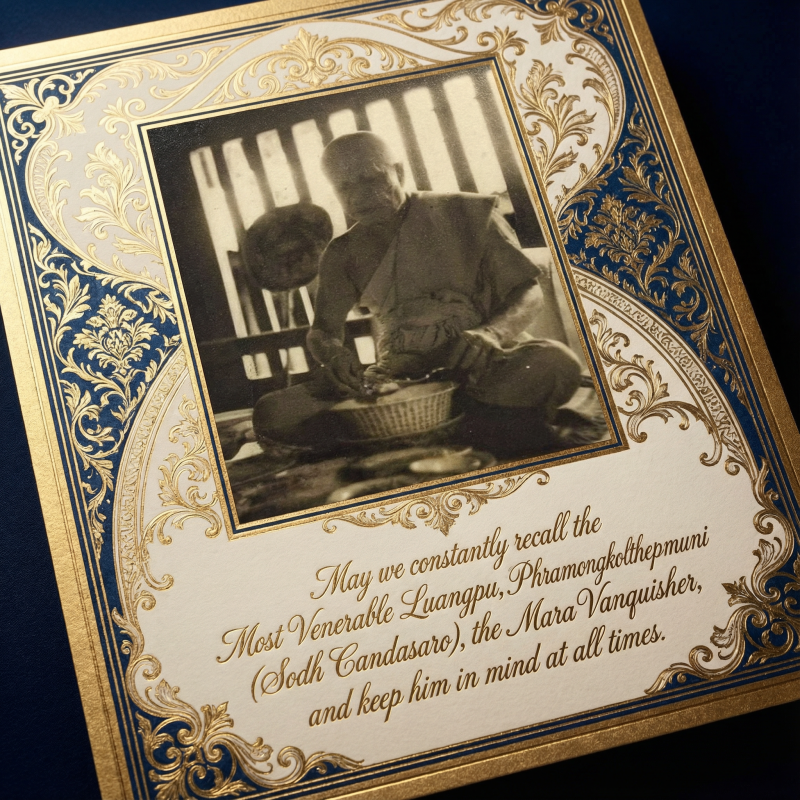 May we constantly recall the
Most Venerable Luangpu, Phramongkolthepmuni
(Sodh Candasaro), the Mara Vanquisher,
and keep him in mind at all times.